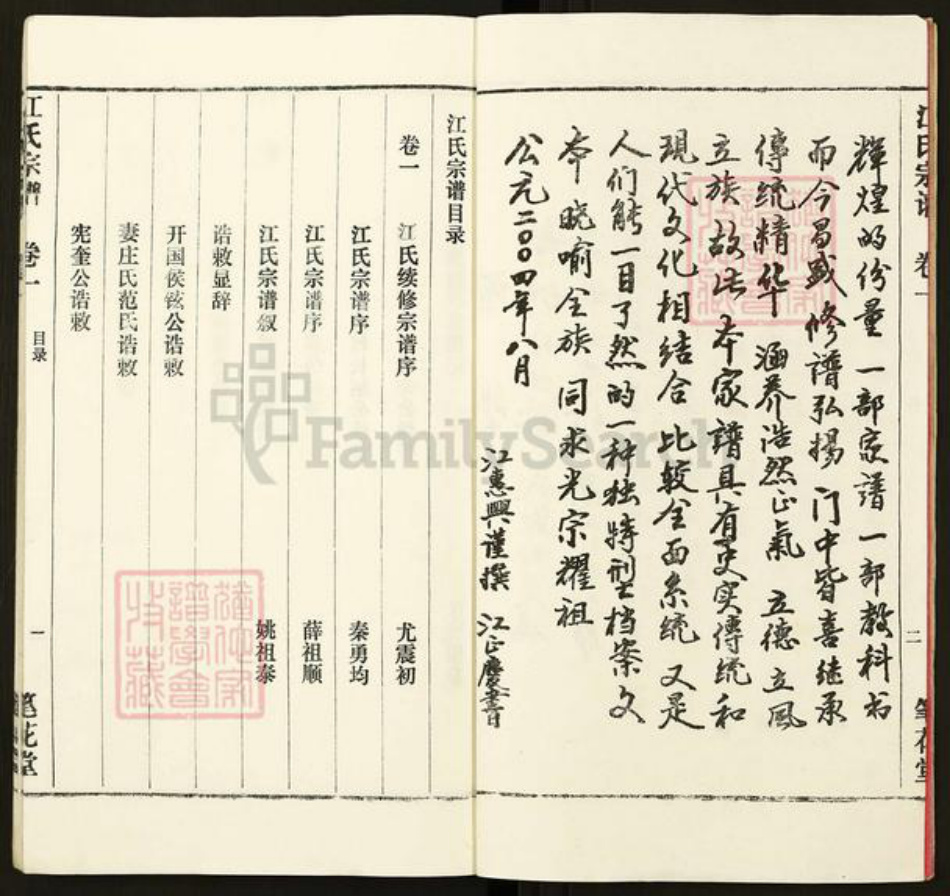 江氏宗谱 卷一 二 笔花堂
輝煌的份量 一部家譜一部教科书
而今昌盛修譜弘揚 门中皆喜继承
傳统精华 涵养浩然正氣 立德立風
立族故法 本家譜具有史实傳统和
現代文化相结合 比较全面系统 又是
人们能一目了然的一种独特型档案文
本 晓喻全族 同求光宗耀祖
公元二〇〇四年八月
江惠興谨撰 江正慶書
江氏宗谱目录
卷一 江氏续修宗谱序 尤震初
江氏宗谱序 秦勇均
江氏宗谱序 薛祖顺
江氏宗谱叙 姚祖泰
诰敕显辞
开国侯铉公诰敕
妻庄氏范氏诰敕
宪奎公诰敕
江氏宗谱 卷一 目录 一 笔花堂
FamilySearch